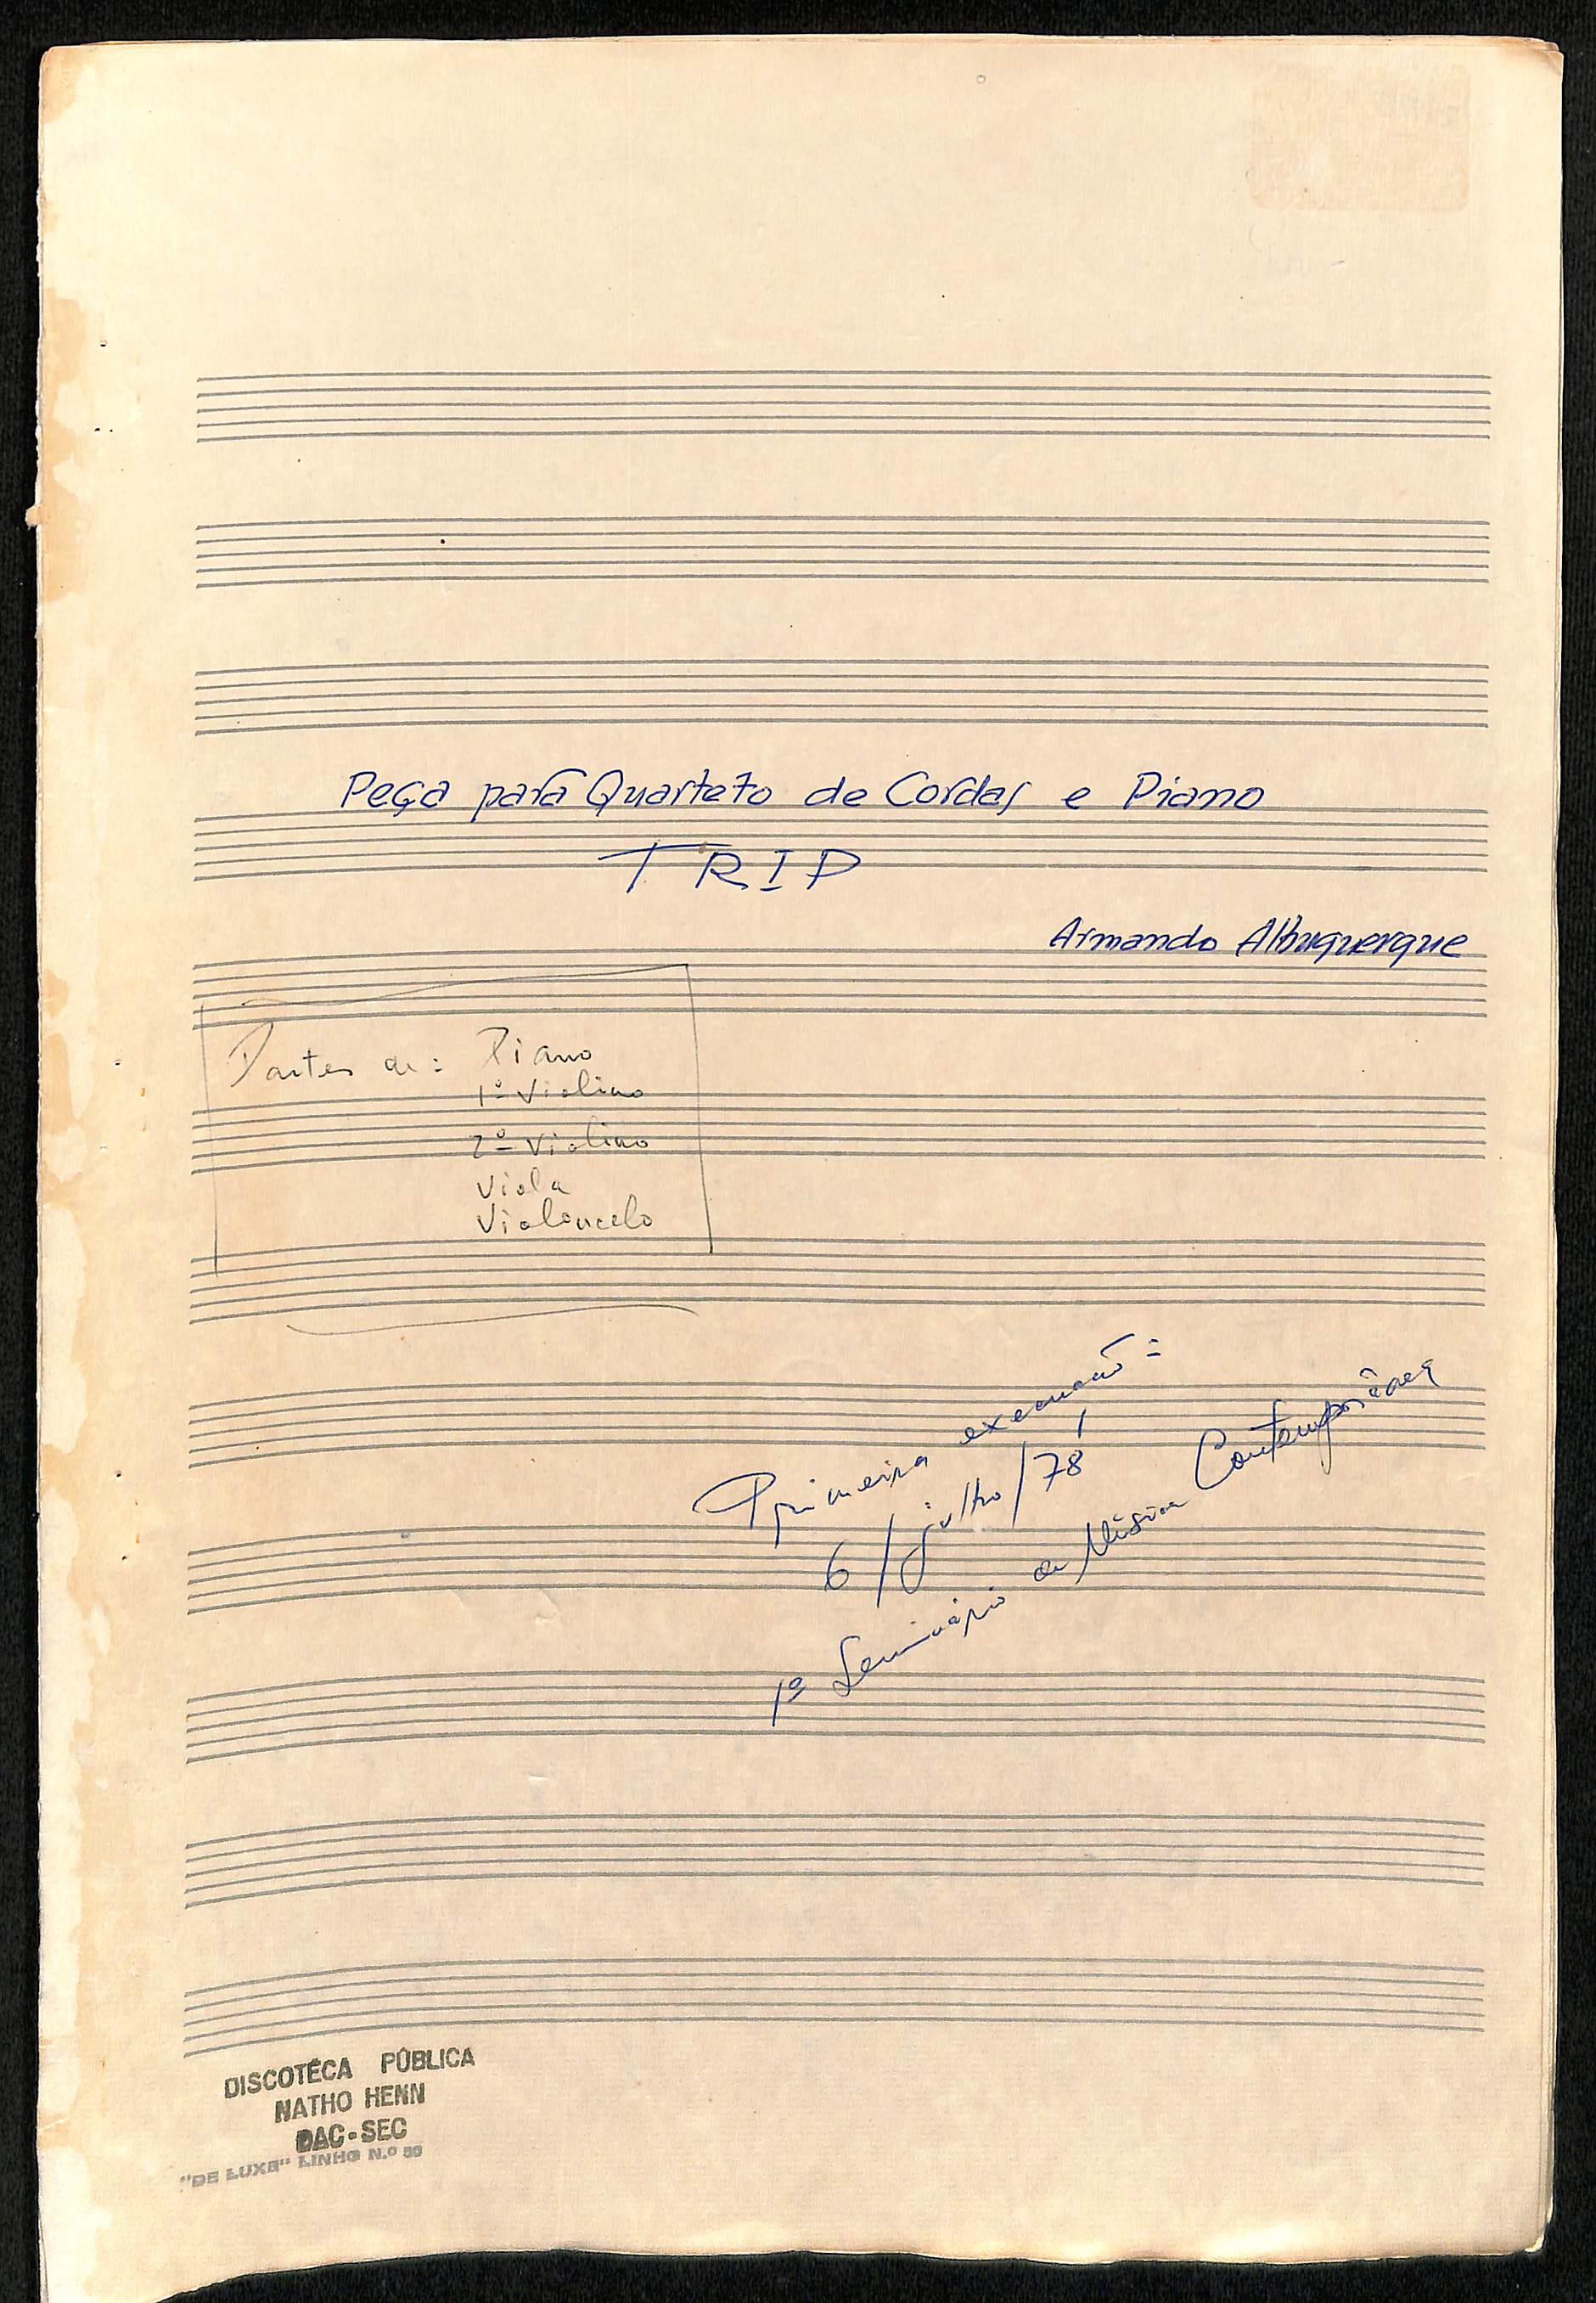 Peça para Quarteto de Cordas e Piano
TRIP
Armando Albuquerque
Partes de: Piano
1º Violino
2º Violino
Viola
Violoncelo
Primeira execução:
6/julho/78
1º Seminário de Música Contemporânea
DISCOTÉCA PÚBLICA
NATHO HENN
DAC-SEC
"DE LUXE" LINHO N.º